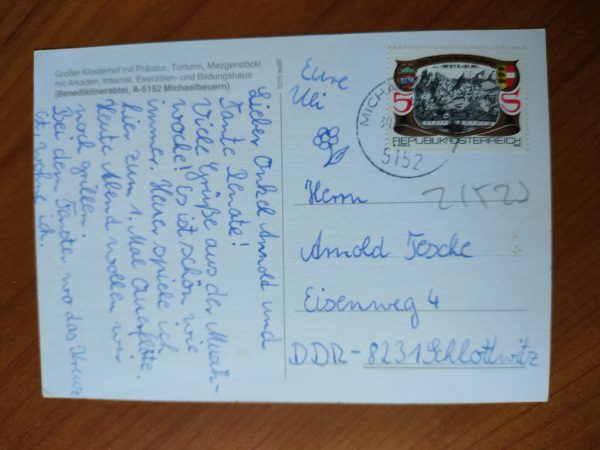 Großer Klosterhof mit Prälatur, Torturm, Mezgerstöckl
mit Arkaden, Internat, Exerzitien- und Bildungshaus
(Benediktinerabtei, A-5152 Michaelbeuern)
Lieber Onkel Arnold und
Tante Renate!
Viele Grüße aus der Musik-
woche! Es ist schön wie
immer. Heuer spiele ich
hier zum 1. Mal Querflöte.
Heute Abend wollen wir
noch grillen.
Bei dem Fenster, wo das Kreuz
ist, wohne ich.
Eure
Uli
MICHA
5152
5 S
REPUBLIK ÖSTERREICH
Herrn
Arnold Jeschke
Eisenweg 4
DDR-8231 Schlottwitz